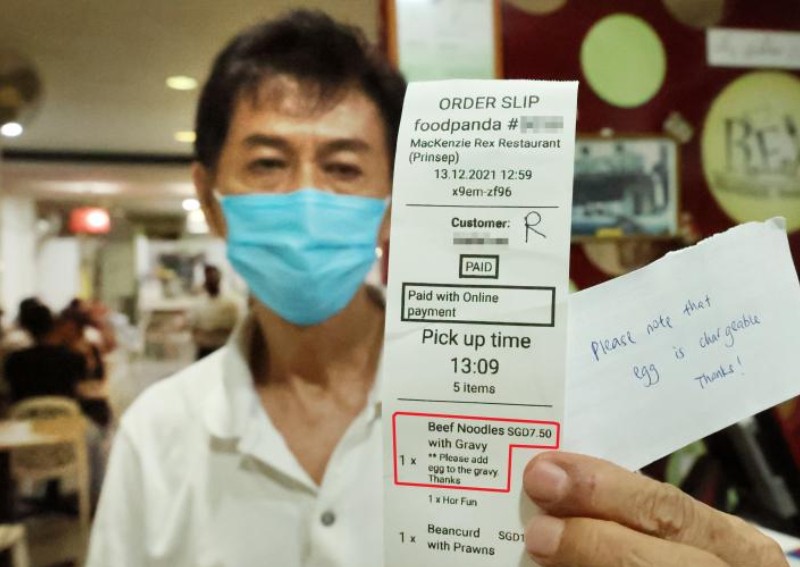 ORDER SLIP
foodpanda #
MacKenzie Rex Restaurant
(Prinsep)
13.12.2021 12:59
x9em-zf96
Customer: R
PAID
Paid with Online
payment
Pick up time
13:09
5 items
Beef Noodles SGD7.50
with Gravy
1 x ** Please add
egg to the gravy.
Thanks
1 x Hor Fun
1 x Beancurd SGD1
with Prawns
Please note that
egg is chargeable
Thanks!
REX